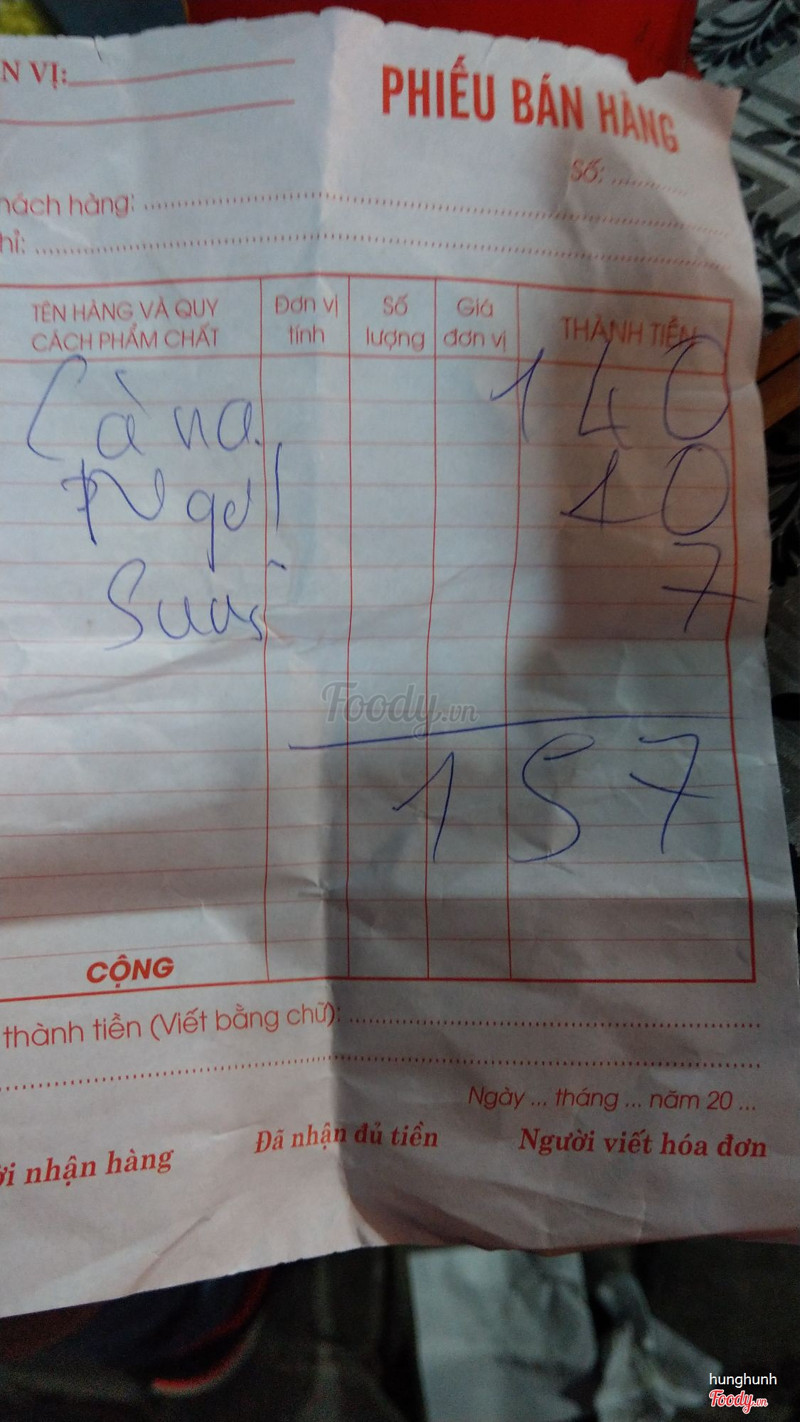 N VỊ:
PHIẾU BÁN HÀNG
Số: ..........
hách hàng: ..........
hỉ: ..........
TÊN HÀNG VÀ QUY CÁCH PHẨM CHẤT
Đơn vị tính
Số lượng
Giá đơn vị
THÀNH TIỀN
140
10
Suối 7
157
CỘNG
thành tiền (Viết bằng chữ): ..........
Ngày ... tháng ... năm 20 ...
ời nhận hàng
Đã nhận đủ tiền
Người viết hóa đơn
Foody.vn
hunghunh
Foody.vn